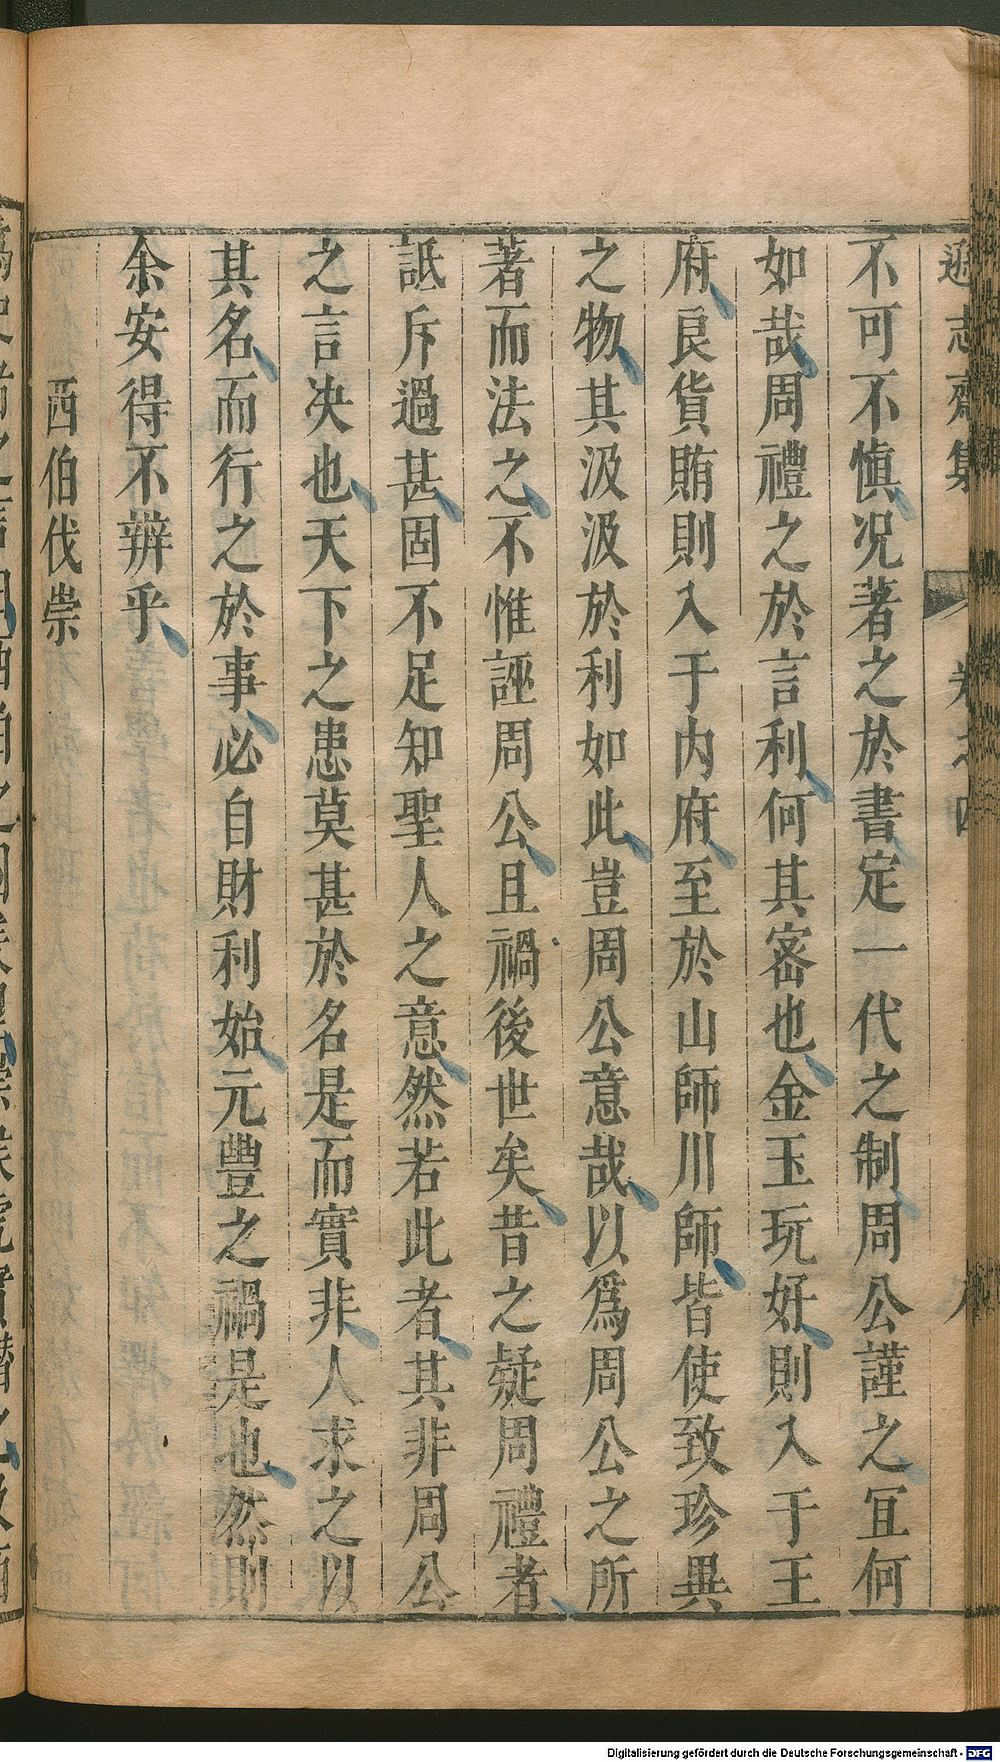 遜志齋集 卷之四 八
不可不慎况著之於書定一代之制周公謹之宜何
如哉周禮之於言利何其密也金玉玩好則入于王
府良貨賄則入于内府至於山師川師皆使致珍異
之物其汲汲於利如此豈周公意哉以爲周公之所
著而法之不惟誣周公且禍後世矣昔之疑周禮者
詆斥過甚固不足知聖人之意然若此者其非周公
之言决也天下之患莫甚於名是而實非人求之以
其名而行之於事必自財利始元豐之禍是也然則
余安得不辨乎
西伯伐崇
Digitalisierung gefördert durch die Deutsche Forschungsgemeinschaft - DFG